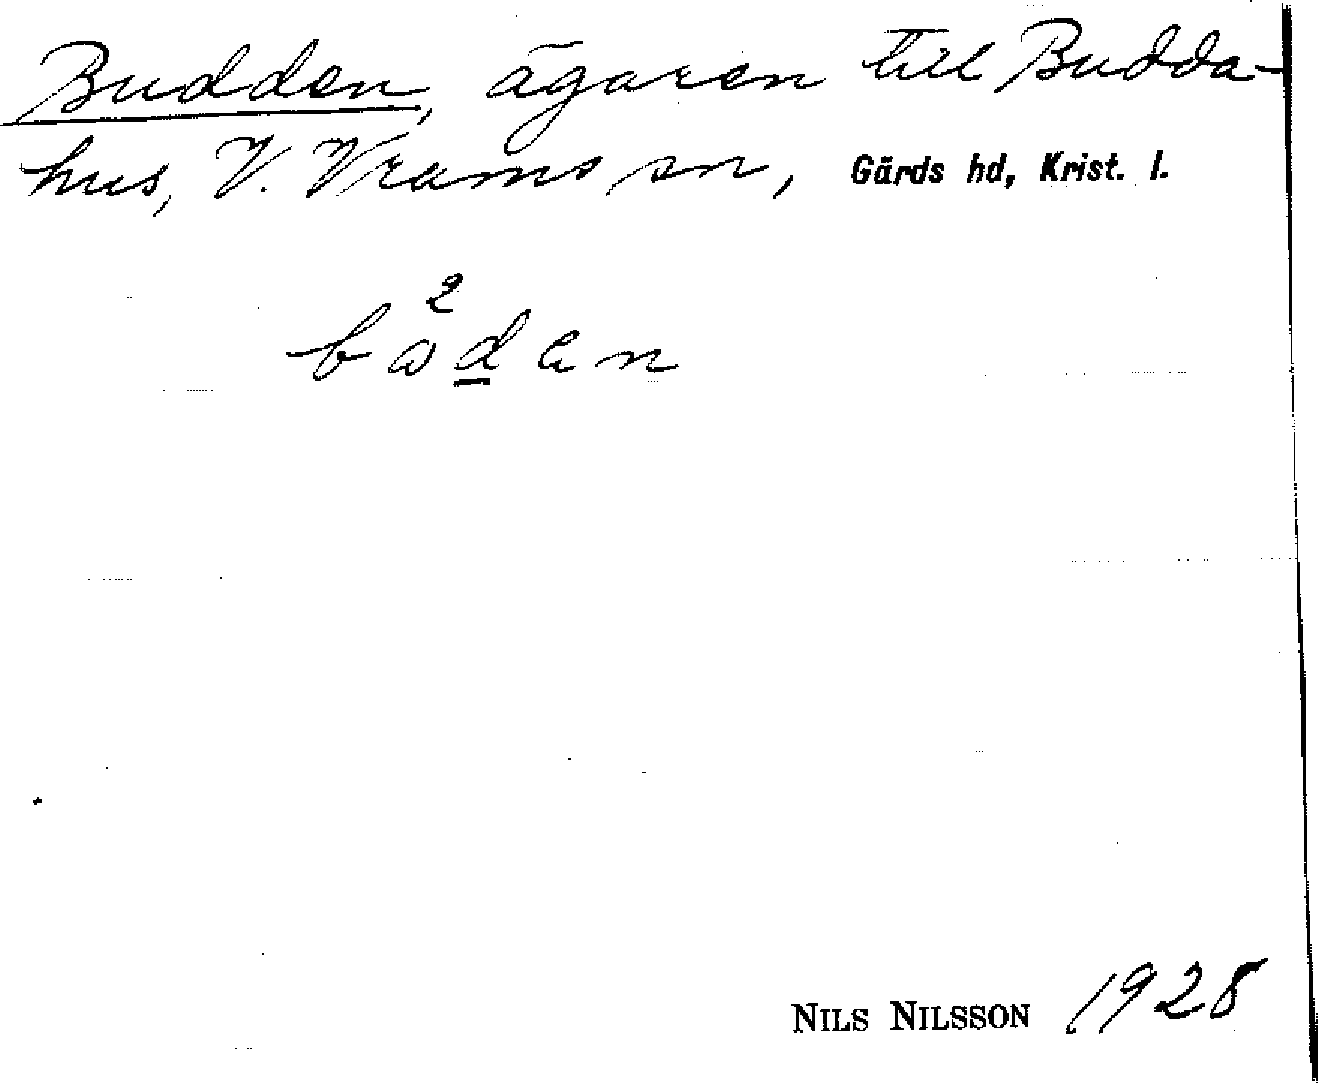 Budden, ägaren till Budda-
hus, V. Vrams sn, Gärds hd, Krist. l.
2
NILS NILSSON 1928